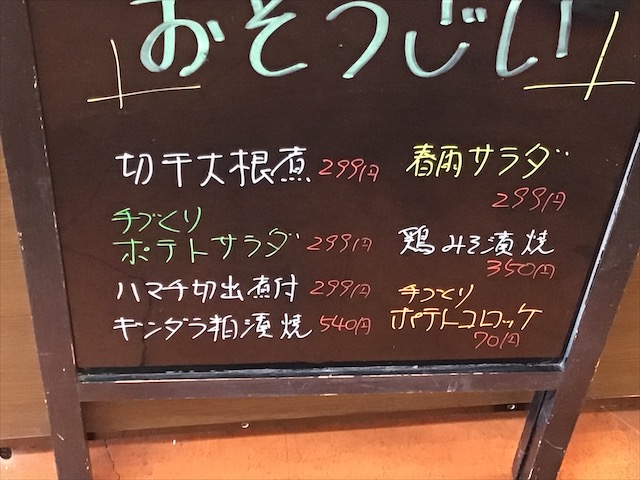 おそうじい
切干大根煮 299円
春雨サラダ
299円
手づくり
ポテトサラダ 299円
鶏みそ漬焼
350円
ハマチ切出煮付 299円
ギンダラ粕漬焼 540円
手づくり
ポテトコロッケ
70円